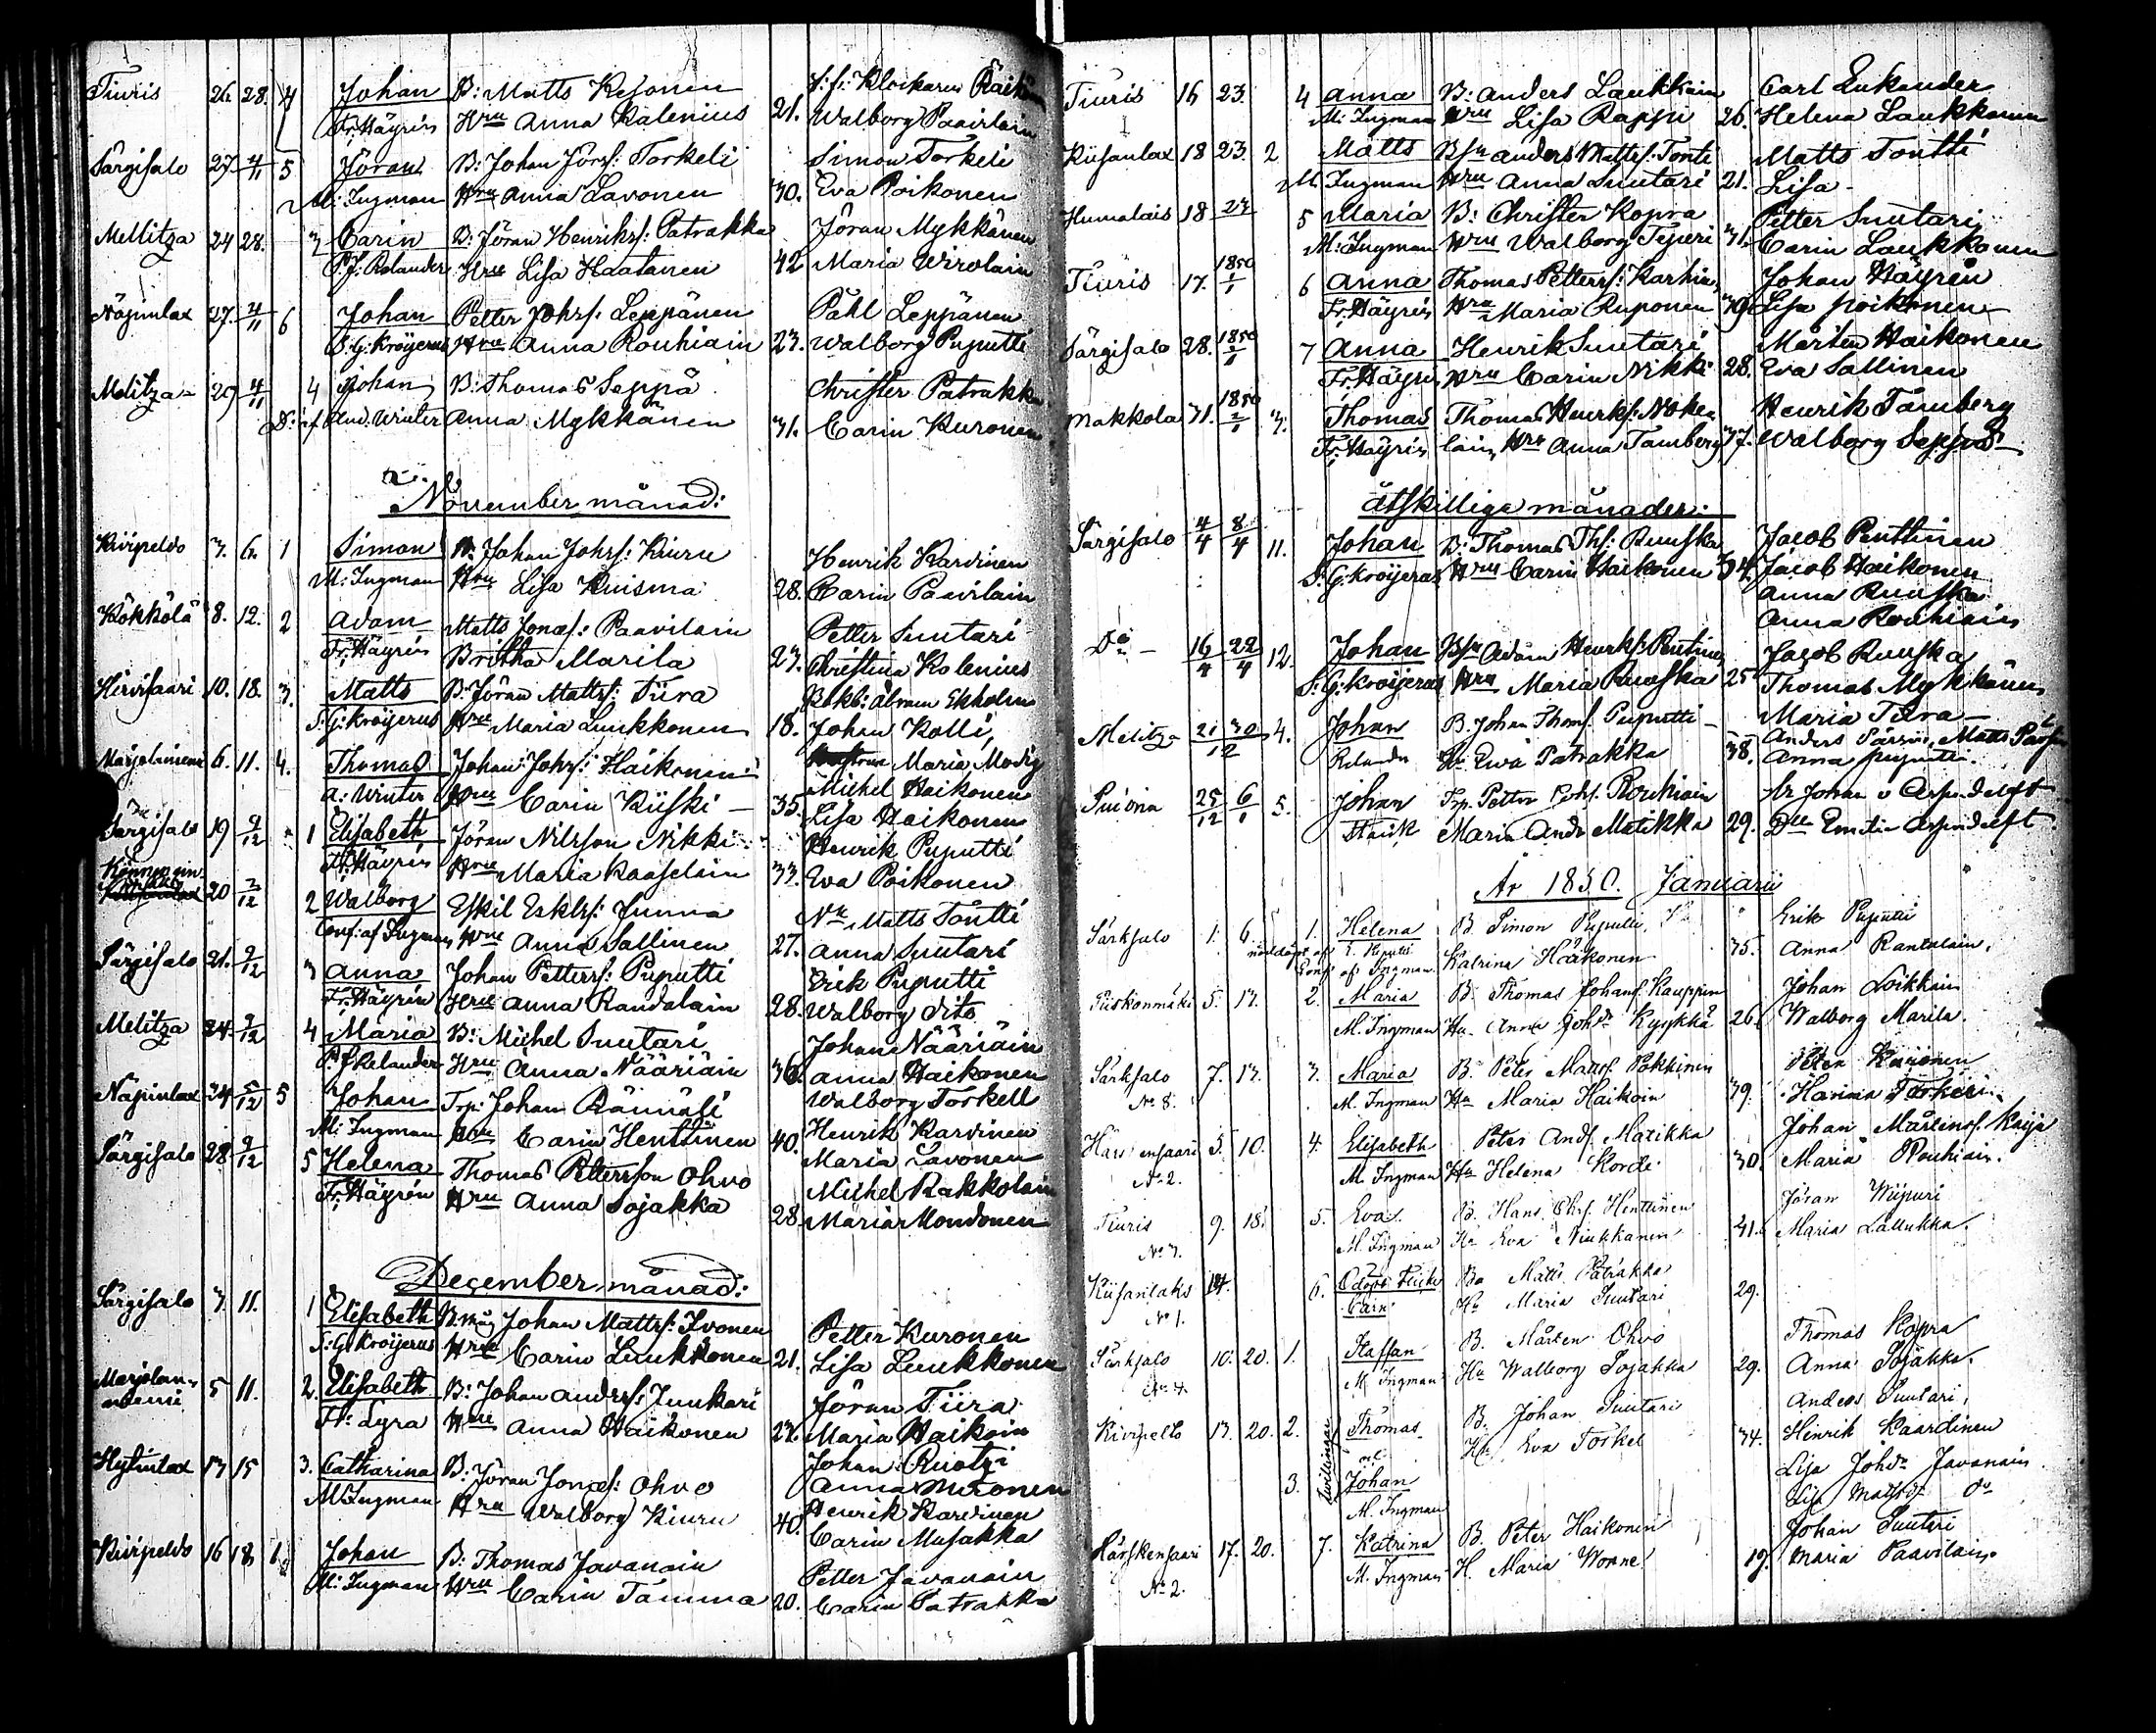 Tiuris 26. 28. 4 Johan B: Matts Kesonen
Fr. Häyrén Hru Anna Kalenius 21. Walborg Paavilain
Särgisalo 27. 4/11 5 Jöran B: Johan Jörs: Torkeli Simon Torkeli
M: Ingman Hru Anna Lavonen 30. Eva Poikonen
Mellitza 24 28. 3 Carin B: Jöran Henriks: Patrakka Jöran Mykkänen
P.J. Relander Hru Lisa Haatanen 42 Maria Wirolain
Näpinlax 27. 4/11 6 Johan Petter Johrs: Leppänen Påhl Leppänen
S: G: Kröijerus Hru Anna Rouhiain 23. Walborg Puputti
Melitza 29 4/11 4 Johan B: Thomas Seppä Christer Patrakka
And. Winter Anna Mykkänen 31. Carin Kuronen
November månad:
Kivipeldo 3. 6. 1 Simon B: Johan Johrs: Kiuru Henrik Kardinen
M: Ingman Hru Lisa Kuisma 28. Carin Paavilain
Kökkölä 8. 12. 2 Adam Matts Jonæs: Paavilain Petter Suutari
Fr. Häyrén Britha Marila 23. Christina Kolenius
Hirvisaari 10. 18. 3. Matts B: Jöran Matts: Tiira Ekholm
S: G: Kröijerus Hru Maria Luukkonen 18. Johan Kolli,
6. 11. 4. Thomas Johan Johrs: Haikonen Maria Modig
A: Winter Hru Carin Kiiski — 35. Michel Haikonen
Lisa Haikonen
Särgisalo 19 9/12 1 Elisabeth Jöran Nilsson Nikki Henrik Puputti
Fr. Häyrén Hru Maria Kaaselain 33. Eva Poikonen
20 2/12 2 Walborg Eskil Eskls: Junna Matts Tontti
Conf: af Ingman Hru Anna Sallinen 27. Anna Suutari
Särgisalo 21. 9/12 3 Anna Johan Petters: Puputti Erik Puputti
Fr. Häyrén Hru Anna Randalain 28. Walborg dito
Melitza 24. 9/12 4 Maria B: Michel Suutari Johan Nääriäin
P J Relander Hru Anna Nääriäin 36. Anna Haikonen
Näpinlax 24 5/12 5 Johan Trp: Johan Rännäli Walborg Torkell
M: Ingman Hru Carin Henttinen 40. Henrik Kardinen
Särgisalo 28 9/12 5 Helena Thomas Pettersson Ohvo Maria Lavonen
Fr. Häyrén Hru Anna Sojakka Michel Rakkolain
28 Maria Mondonen
December månad:
Särgisalo 7. 11. 1 Elisabeth B: måg Johan Matts: Ivonen Petter Kuronen
S: G: Kröijerus Hru Carin Luukkonen 21. Lisa Luukkonen
Marjolanniemi 5 11. 2. Elisabeth B: Johan Andrs: Junkari Jöran Tiira
Fr: Lyra Hru Anna Haikonen 27. Maria Haikoin
13 15 3. Catharina B: Jöran Jonæs: Ohvo Johan Ruotzi
M: Ingman Hru Walborg Kiuru Anna Mironen
40. Henrik Kardinen
Carin Musakka
Kivipeldo 16 18 Johan B: Thomas Javanain Petter Javanain
M: Ingman Hru Carin Tamma 20. Carin Patrakka
Tiuris 16 23. 4 Anna B: Anders Laukkain Carl Enkander
M: Ingman Hru Lisa Rappi 26. Helena Laukkonen
Kiisanlax 18 23. 2 Matts Bsn Anders Matts: Tonti Matts Tontti
M. Ingman Hru Anna Suutari 21. Lisa —
Humalais 18 27 5 Maria B: Christer Kopra Petter Suutari
M: Ingman Hru Walborg Tepori 31. Carin Laukkanen
Tiuris 17. 1850 6 Anna Thomas Petters: Karhu Johan Häyrén
Fr. Häyrén Hru Maria Reponen 39. Lisa Poikonen
Särgisalo 28. 1850 7 Anna Henrik Suutari Mårten Haikonen
Fr. Häyrén Hru Carin Nikki 28. Eva Sallinen
Makkola 31. 1850 3. Thomas Thomas Henrks: Nokea Henrik Tamberg
Fr. Häyrén lain Hru Anna Tamberg 37. Walborg Seppä —
Åtskillige månader:
Särgisalo 4/4 8/4 11. Johan B: Thomas Ths: Ruuska Jacob Penttinen
S: G: Kröijerus Hru Carin Haikonen 34. Jacob Haikonen
Anna Ruuska
Anna Rouhiain
Do — 16/4 22/4 12. Johan Bsn Adam Henrks: Pentinen Jacob Ruuska
S: G: Kröijerus Hru Maria Ruuska 25 Thomas Mykkänen
Maria Tiira —
Melitza 21 30/12 4. Johan B. Johan Thoms. Puputti — Anders Pärssin, Matts
Relander Hu Ewa Patrakka 38. Anna Puputti.
25/12 6/1 5. Johan Trp. Petter Rouhiain Hr Johan
Maria Andr Matikka 29. Emilia
År 1850. Januarii
Särksalo 1. 6. 1. Helena B. Simon Puputti, Erik Puputti
nöddöpt af E. Puputti
Conf. af Ingman. Katrina Häikonen 35. Anna Rantalain.
Puskonmäki 5. 13. 2. Maria B. Thomas Johans. Kauppin Johan Loikkain
M. Ingman Hu Anna Johdr Kyykkä 26. Walborg Marila.
Särksalo 7. 13. 3. Maria B. Peter Matts. Pokkinen Peter Kuronen
No 8. M. Ingman Hu Maria Haikoin 39.
5. 10. 4. Elisabeth Peter Ands. Matikka Johan Mårtenss. Kaija
No 2. M. Ingman Hu Helena Kordi 30. Maria Rouhiain.
Tiuris 9. 18. 5. Eva. B. Hans Chrs. Henttinen Jöran Wiipuri
No 7. M. Ingman Hu Eva Niukkanen 41. Maria Lallukka.
Kiisanlaks 14. 6. Odöpt Flicka Bo Matts Patrakka
No 1. Hu Maria Suutari 29.
Särksalo 10. 20. 1. Staffan B. Mårten Ohvo Thomas Kopra
No 4. M. Ingman Hu Walborg Sojakka 29. Anna Sojakka.
Kivipelto 13. 20. 2. Thomas B. Johan Suutari Anders Suutari,
tvillingar Hu Eva Torkel 34. Henrik Kaardinen
3. Johan Lisa Johdr Javanain
M. Ingman Lisa Mattsdr do
17. 20. 7. Katrina B. Peter Haikonen Johan Suutari
No 2. M. Ingman H. Maria Wonne 19. Maria Paavilain.